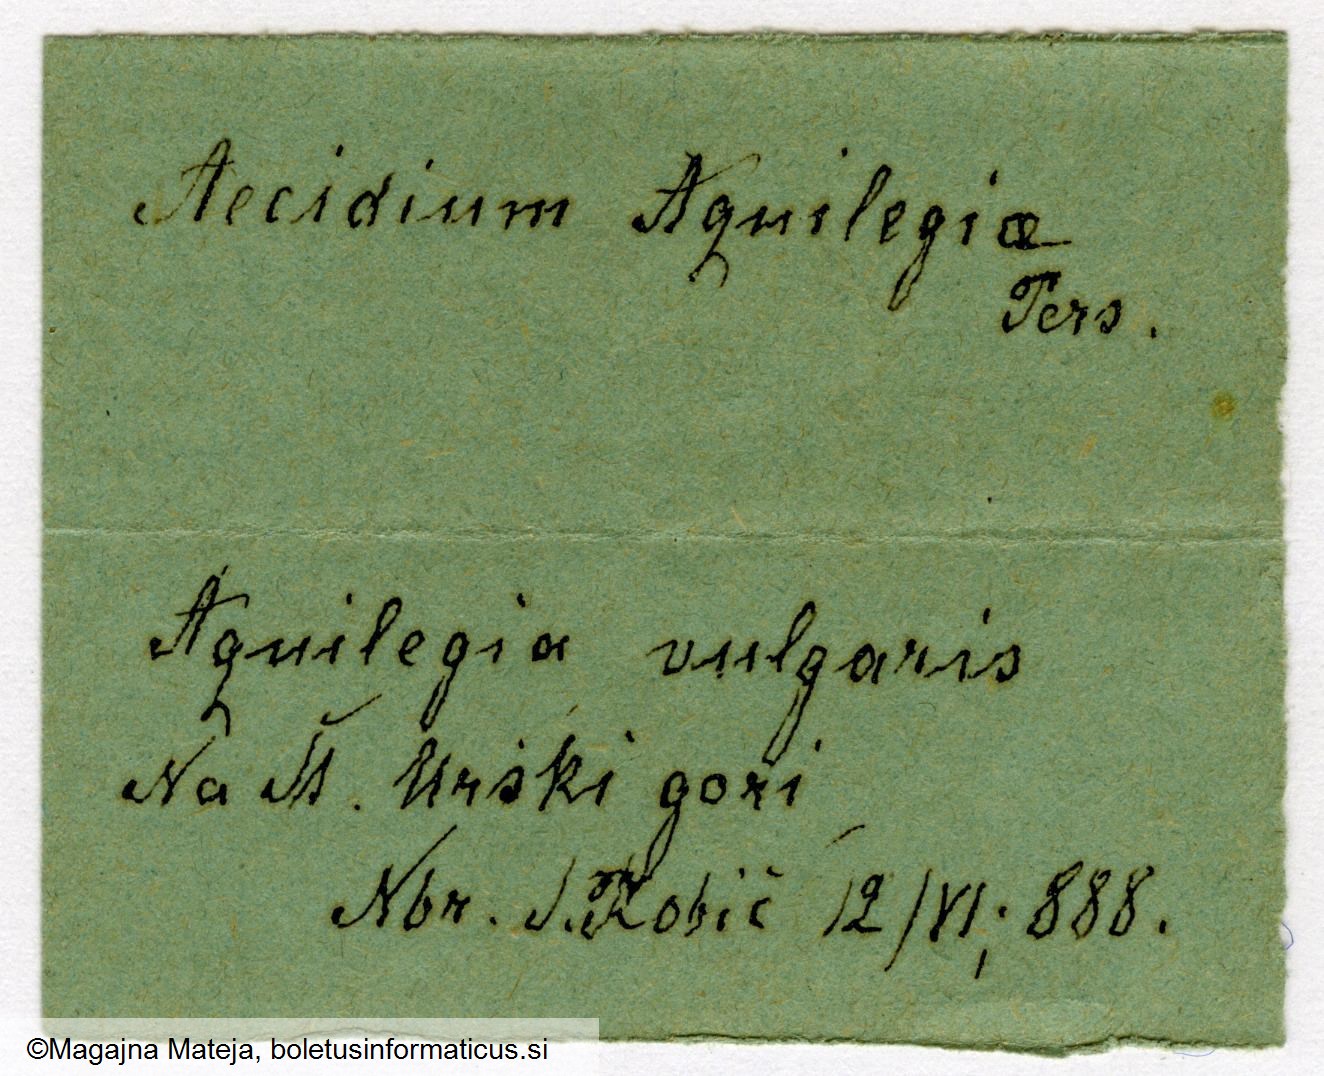 Aecidium Aquilegiæ
Pers.
Aquilegia vulgaris
Na Šm. Urški gori
Nbr. S. Robič 12/VI, 888.
©Magajna Mateja, boletusinformaticus.si